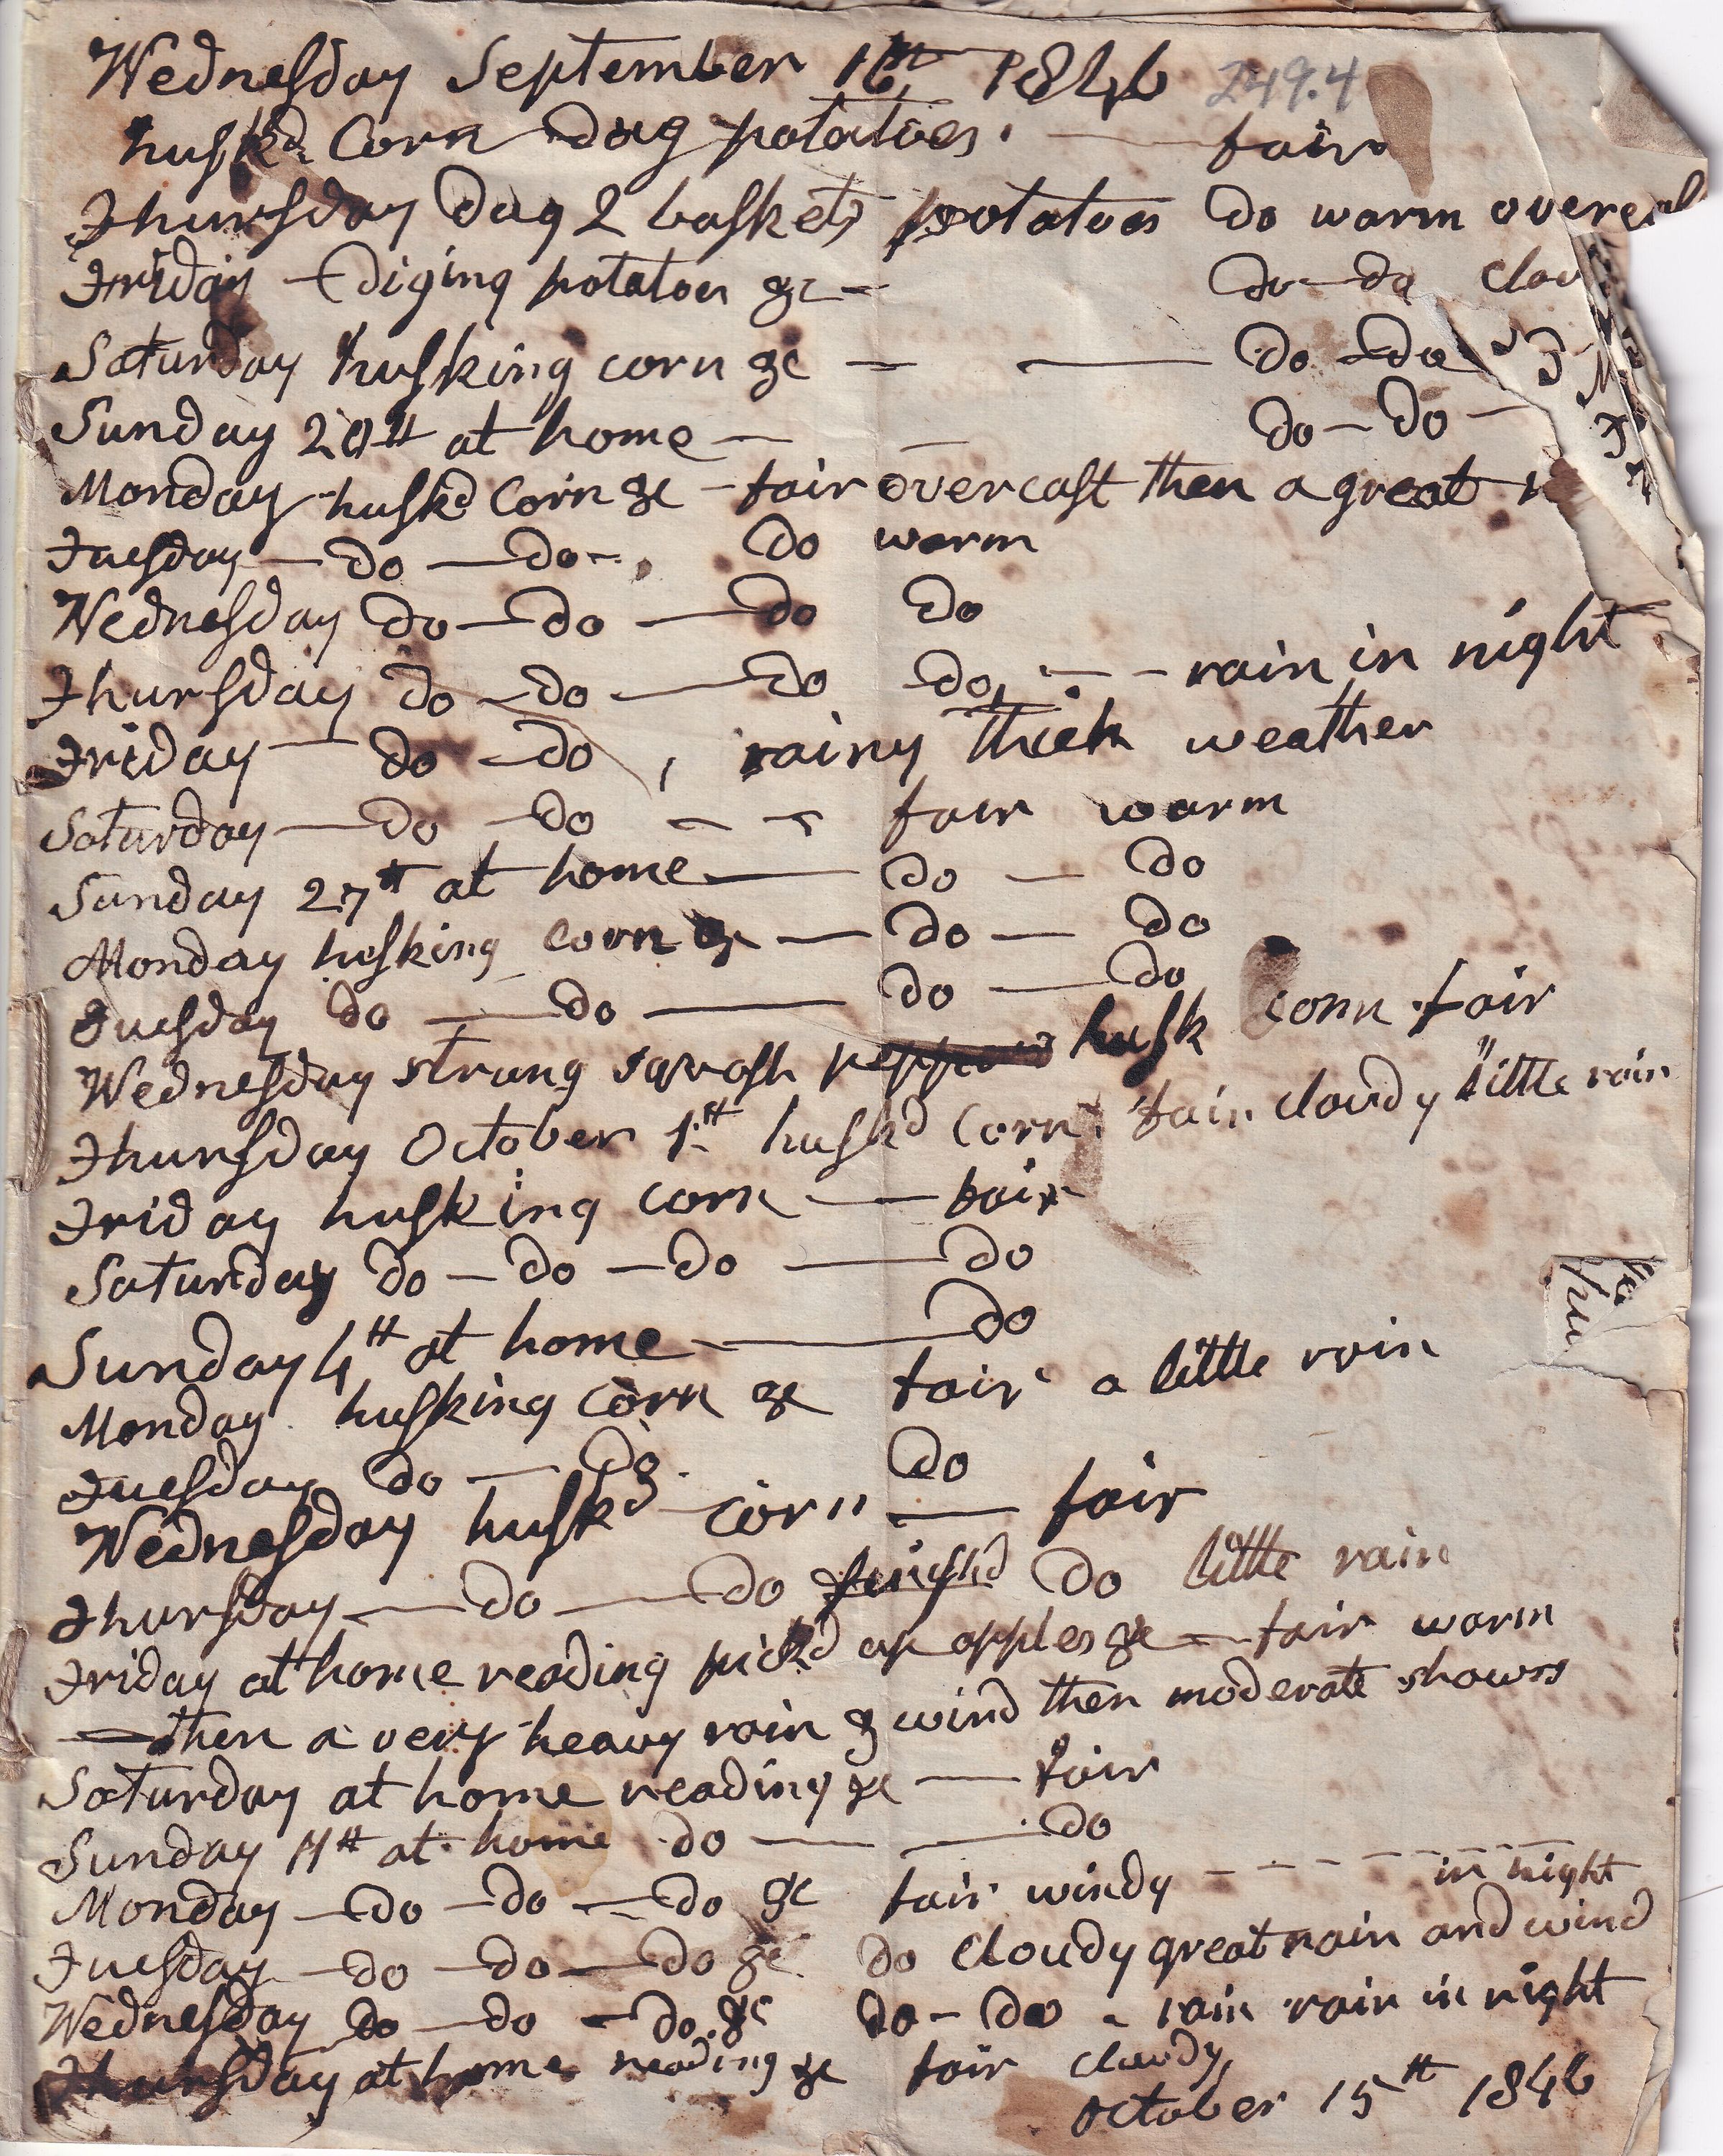 Wednesday September 16th 1846 249.4
huskd Corn Dug potatoes. — fair
Thursday Dug 2 baskets potatoes Do warm overca
Friday – Diging potatoes &c – Do – Do clou
Saturday husking corn &c — — Do – Do
Sunday 20th at home — Do – Do –
Monday huskd Corn &c – fair overcast then a great
Tuesday – Do – Do – Do warm
Wednesday Do – Do – Do Do
Thursday Do – Do – Do Do, – – rain in night
Friday – Do – Do , rainy thick weather
Saturday – Do – Do – – fair warm
Sunday 27th at home — Do – Do
Monday husking corn & — Do — Do
Tuesday Do — Do — Do — Do
Wednesday strung squash husk Corn fair
Thursday October 1st huskd Corn. fair cloudy little rain
Friday husking corn — fair
Saturday Do – Do – Do — Do
Sunday 4th at home — Do
Monday husking Corn &c fair a little rain
Tuesday Do — Do. Do
Wednesday huskd corn — fair
Thursday — Do — Do finishd Do little rain
Friday at home reading pickd up apples &c – fair warm
— then a very heavy rain & wind then moderate showrs
Saturday at home reading &c — fair
Sunday 11th at home Do — — Do
Monday – Do – Do – Do &c fair windy – – – – – in night
Tuesday – Do – Do – Do &c Do Cloudy great rain and wind
Wednesday Do – Do – Do &c Do – Do – rain rain in night
Thursday at home reading &c fair cloudy,
October 15th 1846